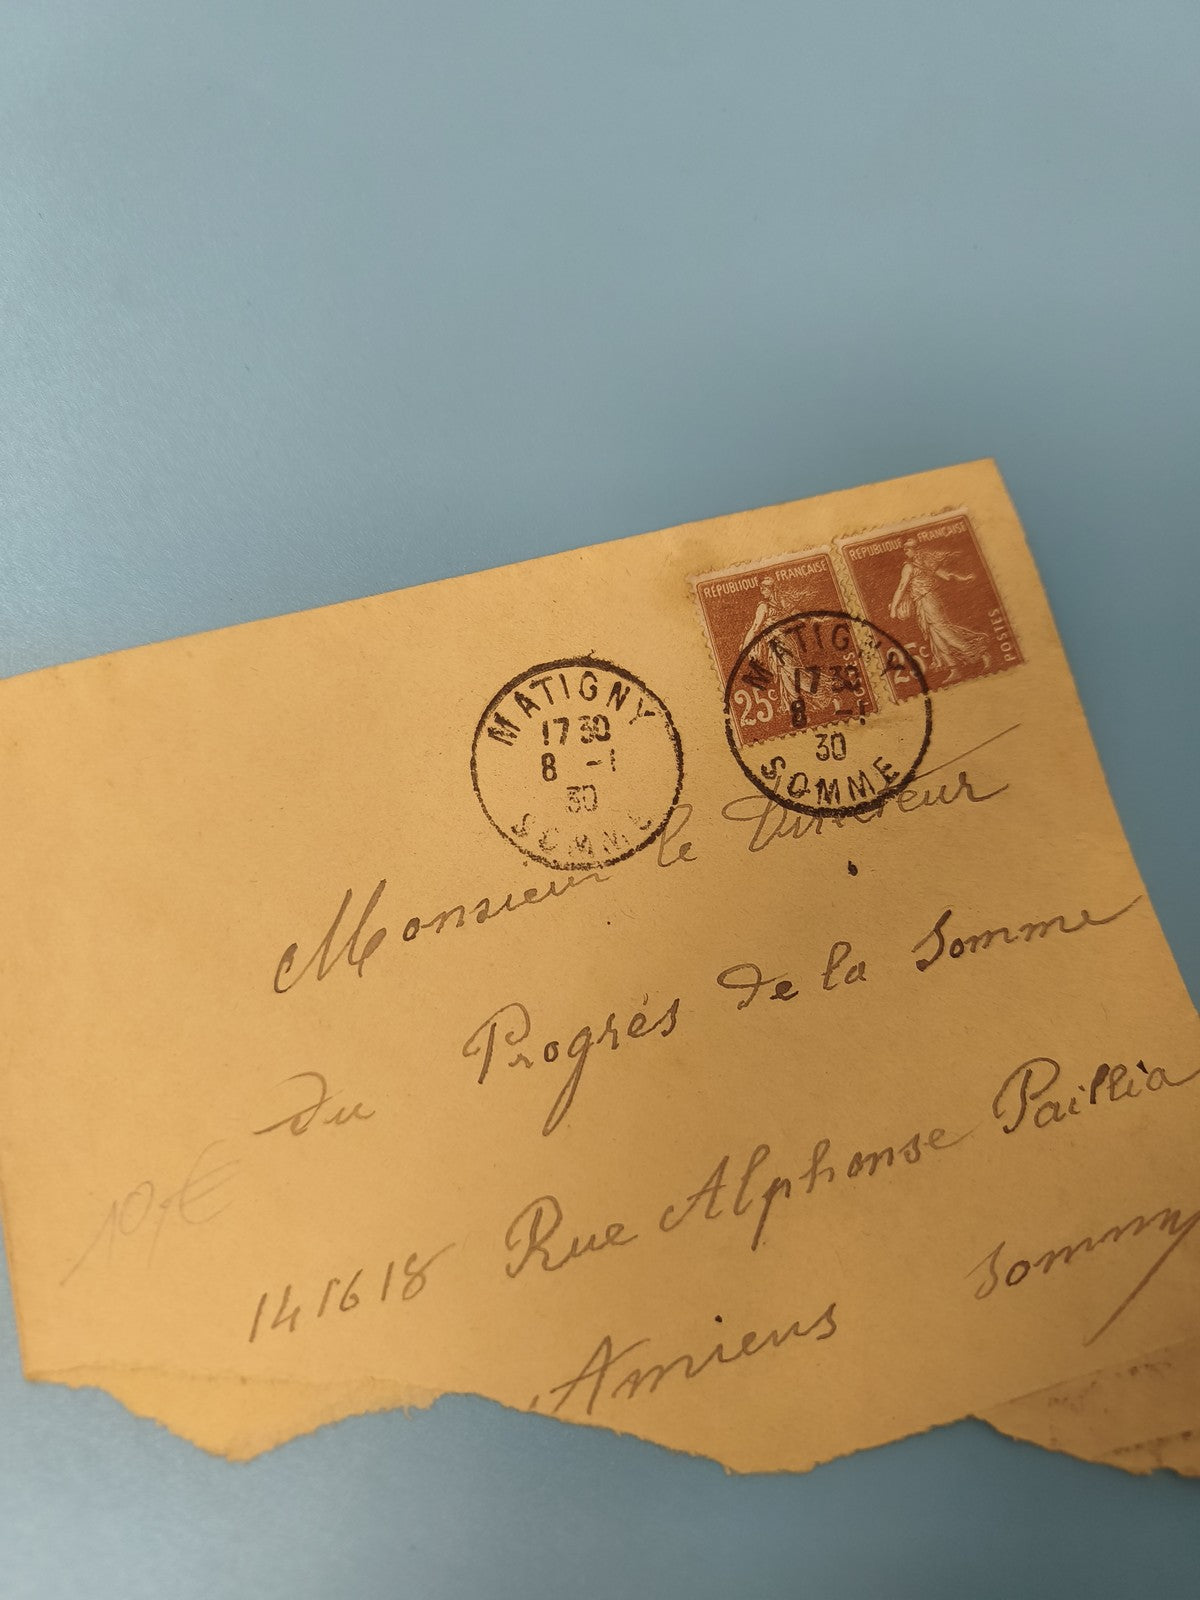 RÉPUBLIQUE FRANÇAISE
25c
RÉPUBLIQUE FRANÇAISE
POSTES
25c
MATIGNY
17 30
8 -1
30
SOMME
MATIGNY
17 30
8 -1
30
SOMME
Monsieur le Directeur
du Progrés de la Somme
14 16 18 Rue Alphonse Paillia
Amiens Somme
10,€